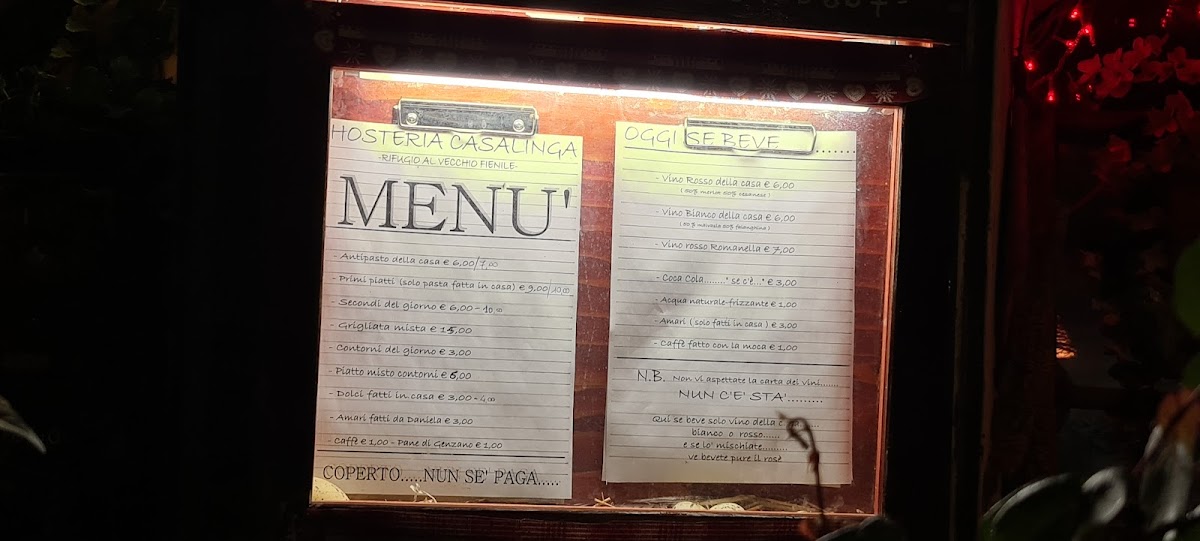 HOSTERIA CASALINGA
-RIFUGIO AL VECCHIO FIENILE-
MENU'
- Antipasto della casa € 6,00/7,00
- Primi piatti (solo pasta fatta in casa) € 9,00/10,00
- Secondi del giorno € 6,00 - 10,00
- Grigliata mista € 15,00
- Contorni del giorno € 3,00
- Piatto misto contorni € 6,00
- Dolci fatti in casa € 3,00 - 4,00
- Amari fatti da Daniela € 3,00
- Caffè € 1,00 - Pane di Genzano € 1,00
COPERTO.....NUN SE' PAGA.....
OGGI SE BEVE ........
- Vino Rosso della casa € 6,00
- Vino Bianco della casa € 6,00
- Vino rosso Romanella € 7,00
- Coca Cola........" se c'è..." € 3,00
- Acqua naturale-frizzante € 1,00
- Amari ( solo fatti in casa ) € 3,00
- Caffè fatto con la moca € 1,00
N.B. Non vi aspettate la carta dei vini.......
NUN C'E' STA'.........
Qui se beve solo vino della
bianco o rosso......
e se lo' mischiate.........
ve bevete pure il rosè